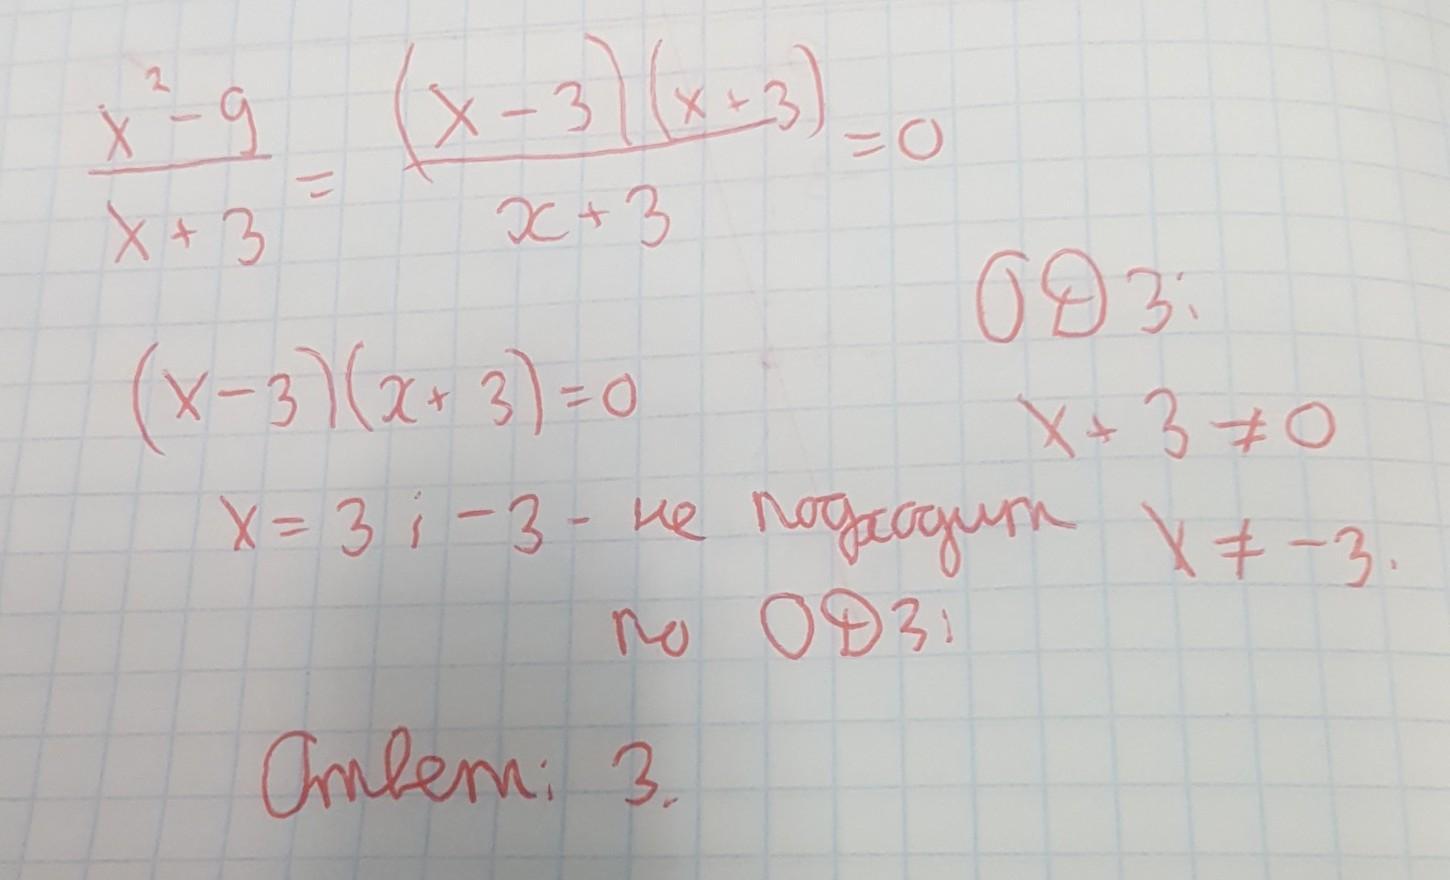 x² - 9 / x + 3 = (x - 3)(x + 3) / x + 3 = 0
ОДЗ:
(x - 3)(x + 3) = 0
x + 3 ≠ 0
x = 3 ; -3 - не подходит
x ≠ -3.
по ОДЗ:
Ответ: 3.